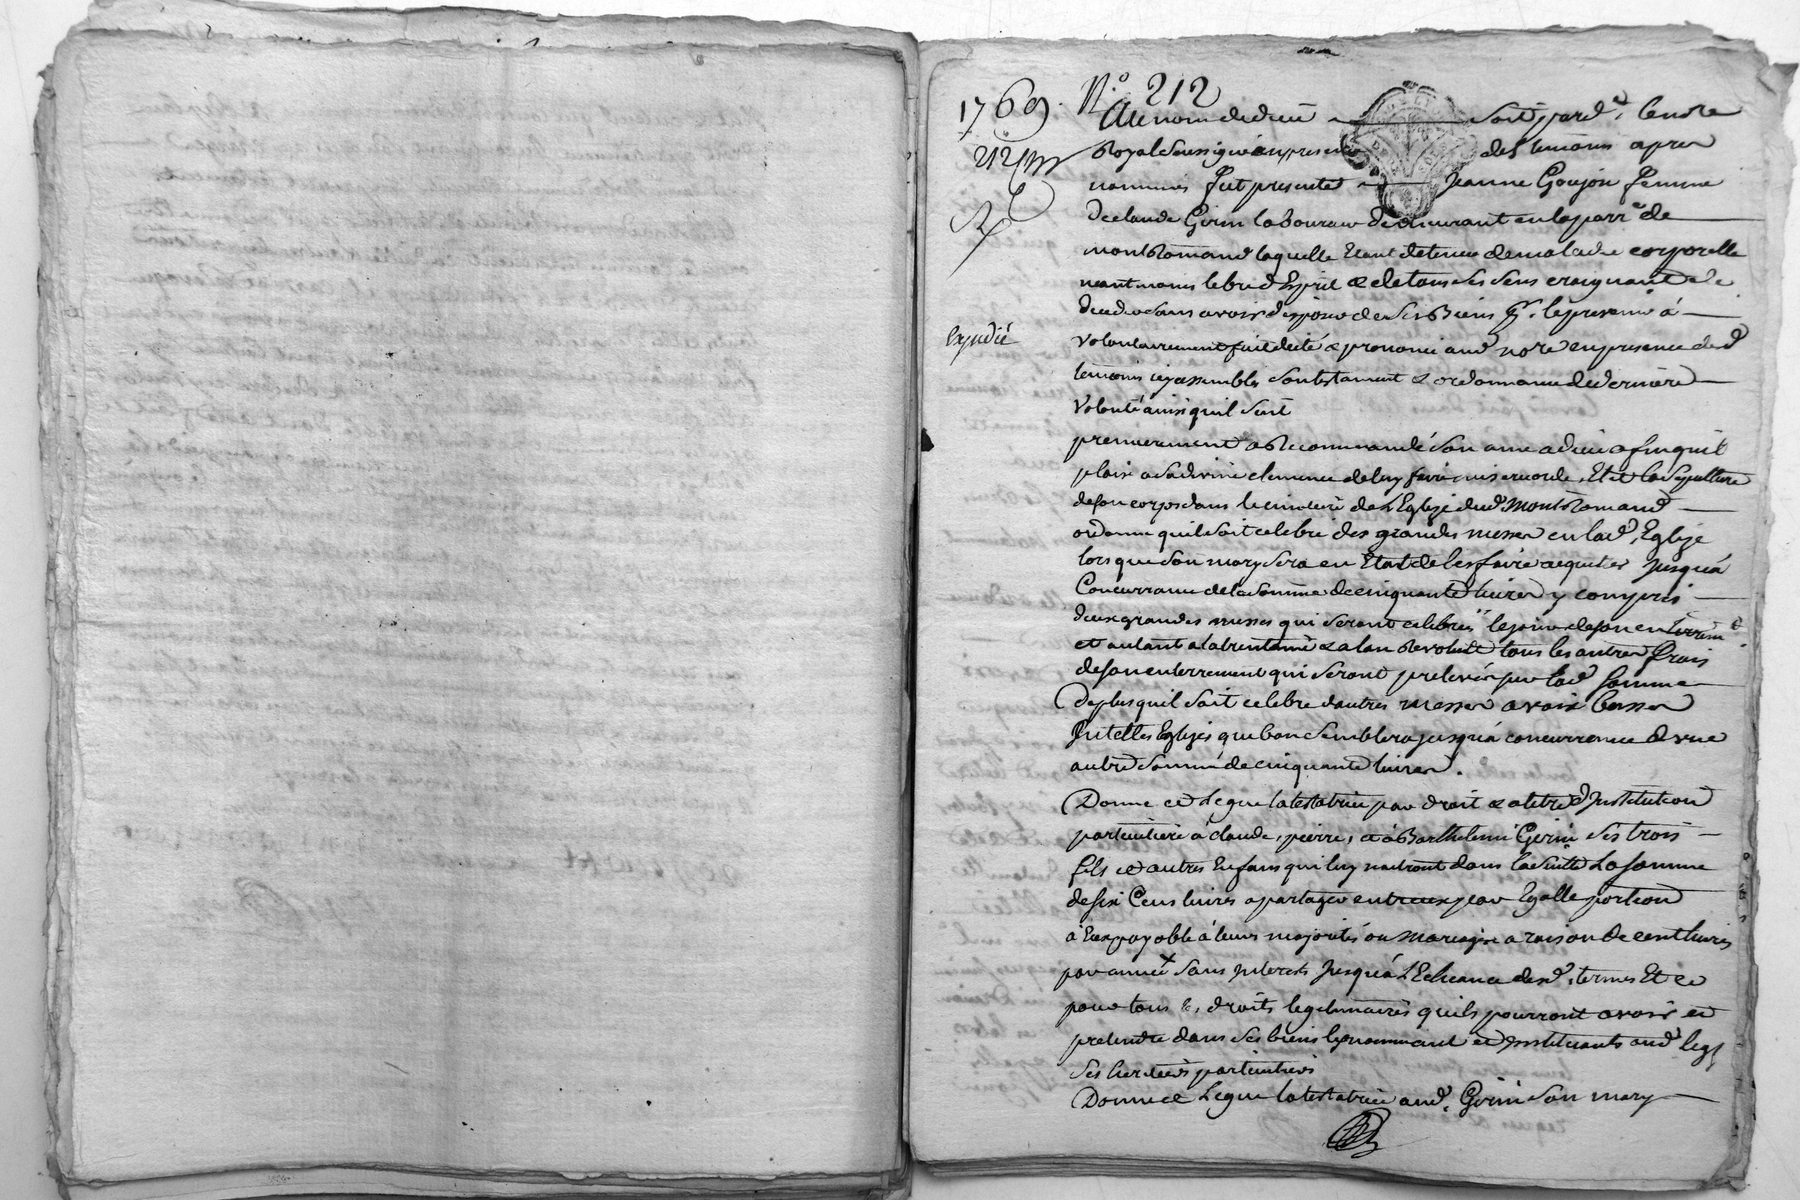 1769
N.º 212
212
Expedié
Au nom de dieu soit pard.t le no.re
Royal soussigné en presence des temoins apres
nommés fut presente Jeanne Goujon femme
de claude Gerin laboureur demeurant en la parr.e de
montRomand laquelle Etant detenue de maladie corporelle
neantmoins libre d'Esprit & de tous ses sens craignant de
deceder sans avoir disposé de ses Biens p.r le prevenir á
volontairement fait dicté & prononcé aud no.re en presence desd
temoins icy assemblés son testament & ordonnance de derniere
volonté ainsi quil suit
premierement a Recommandé son ame a dieu afin quil
plaise a sa divine clemence de luy faire misericorde, Et la sepulture
de son corps dans le cimetiere de l'Eglise dud MontRomand
ordonne quil soit celebré des grandes messes en lad. Eglise
lorsque son mary sera en Etat de les faire acquiter Jusquá
Concurrance de la somme de cinquante livres y compris
deux grandes messes qui seront celebrées le jour de son enterrem.t
et autant a la trentaine & a l'an Revolut tous les autres frais
de son enterrement qui seront prelevés sur lad. somme
De plus quil soit celebré d'autres messes a voix basse
En telles Eglises que bon semblera jusquá concurrence d'une
autre somme de cinquante livres.
Donne et Legue la testatrice par droit & a titre d'Institution
particuliere à claude, pierre, et à Barthelemi Gerin ses trois
fils et autres Enfans qui luy naitront dans la suite La somme
de six Cens livres a partager entreux par Egalle portion
á Eux payable á leurs majorités ou mariage a raison de cent livres
par année sans Interets Jusquá l'Echeance desd. termes Et ce
pour tous les droits legitimaires quils pourront avoir et
pretendre dans ses biens les nommant et Instituants aud legs
ses heritiers particuliers
Donne & Legue la testatrice aud. Gerin son mary